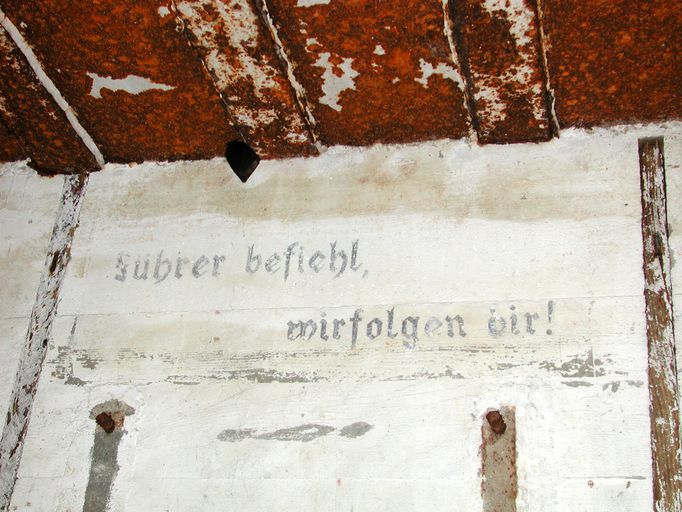 Führer befiehl,
wir folgen dir!